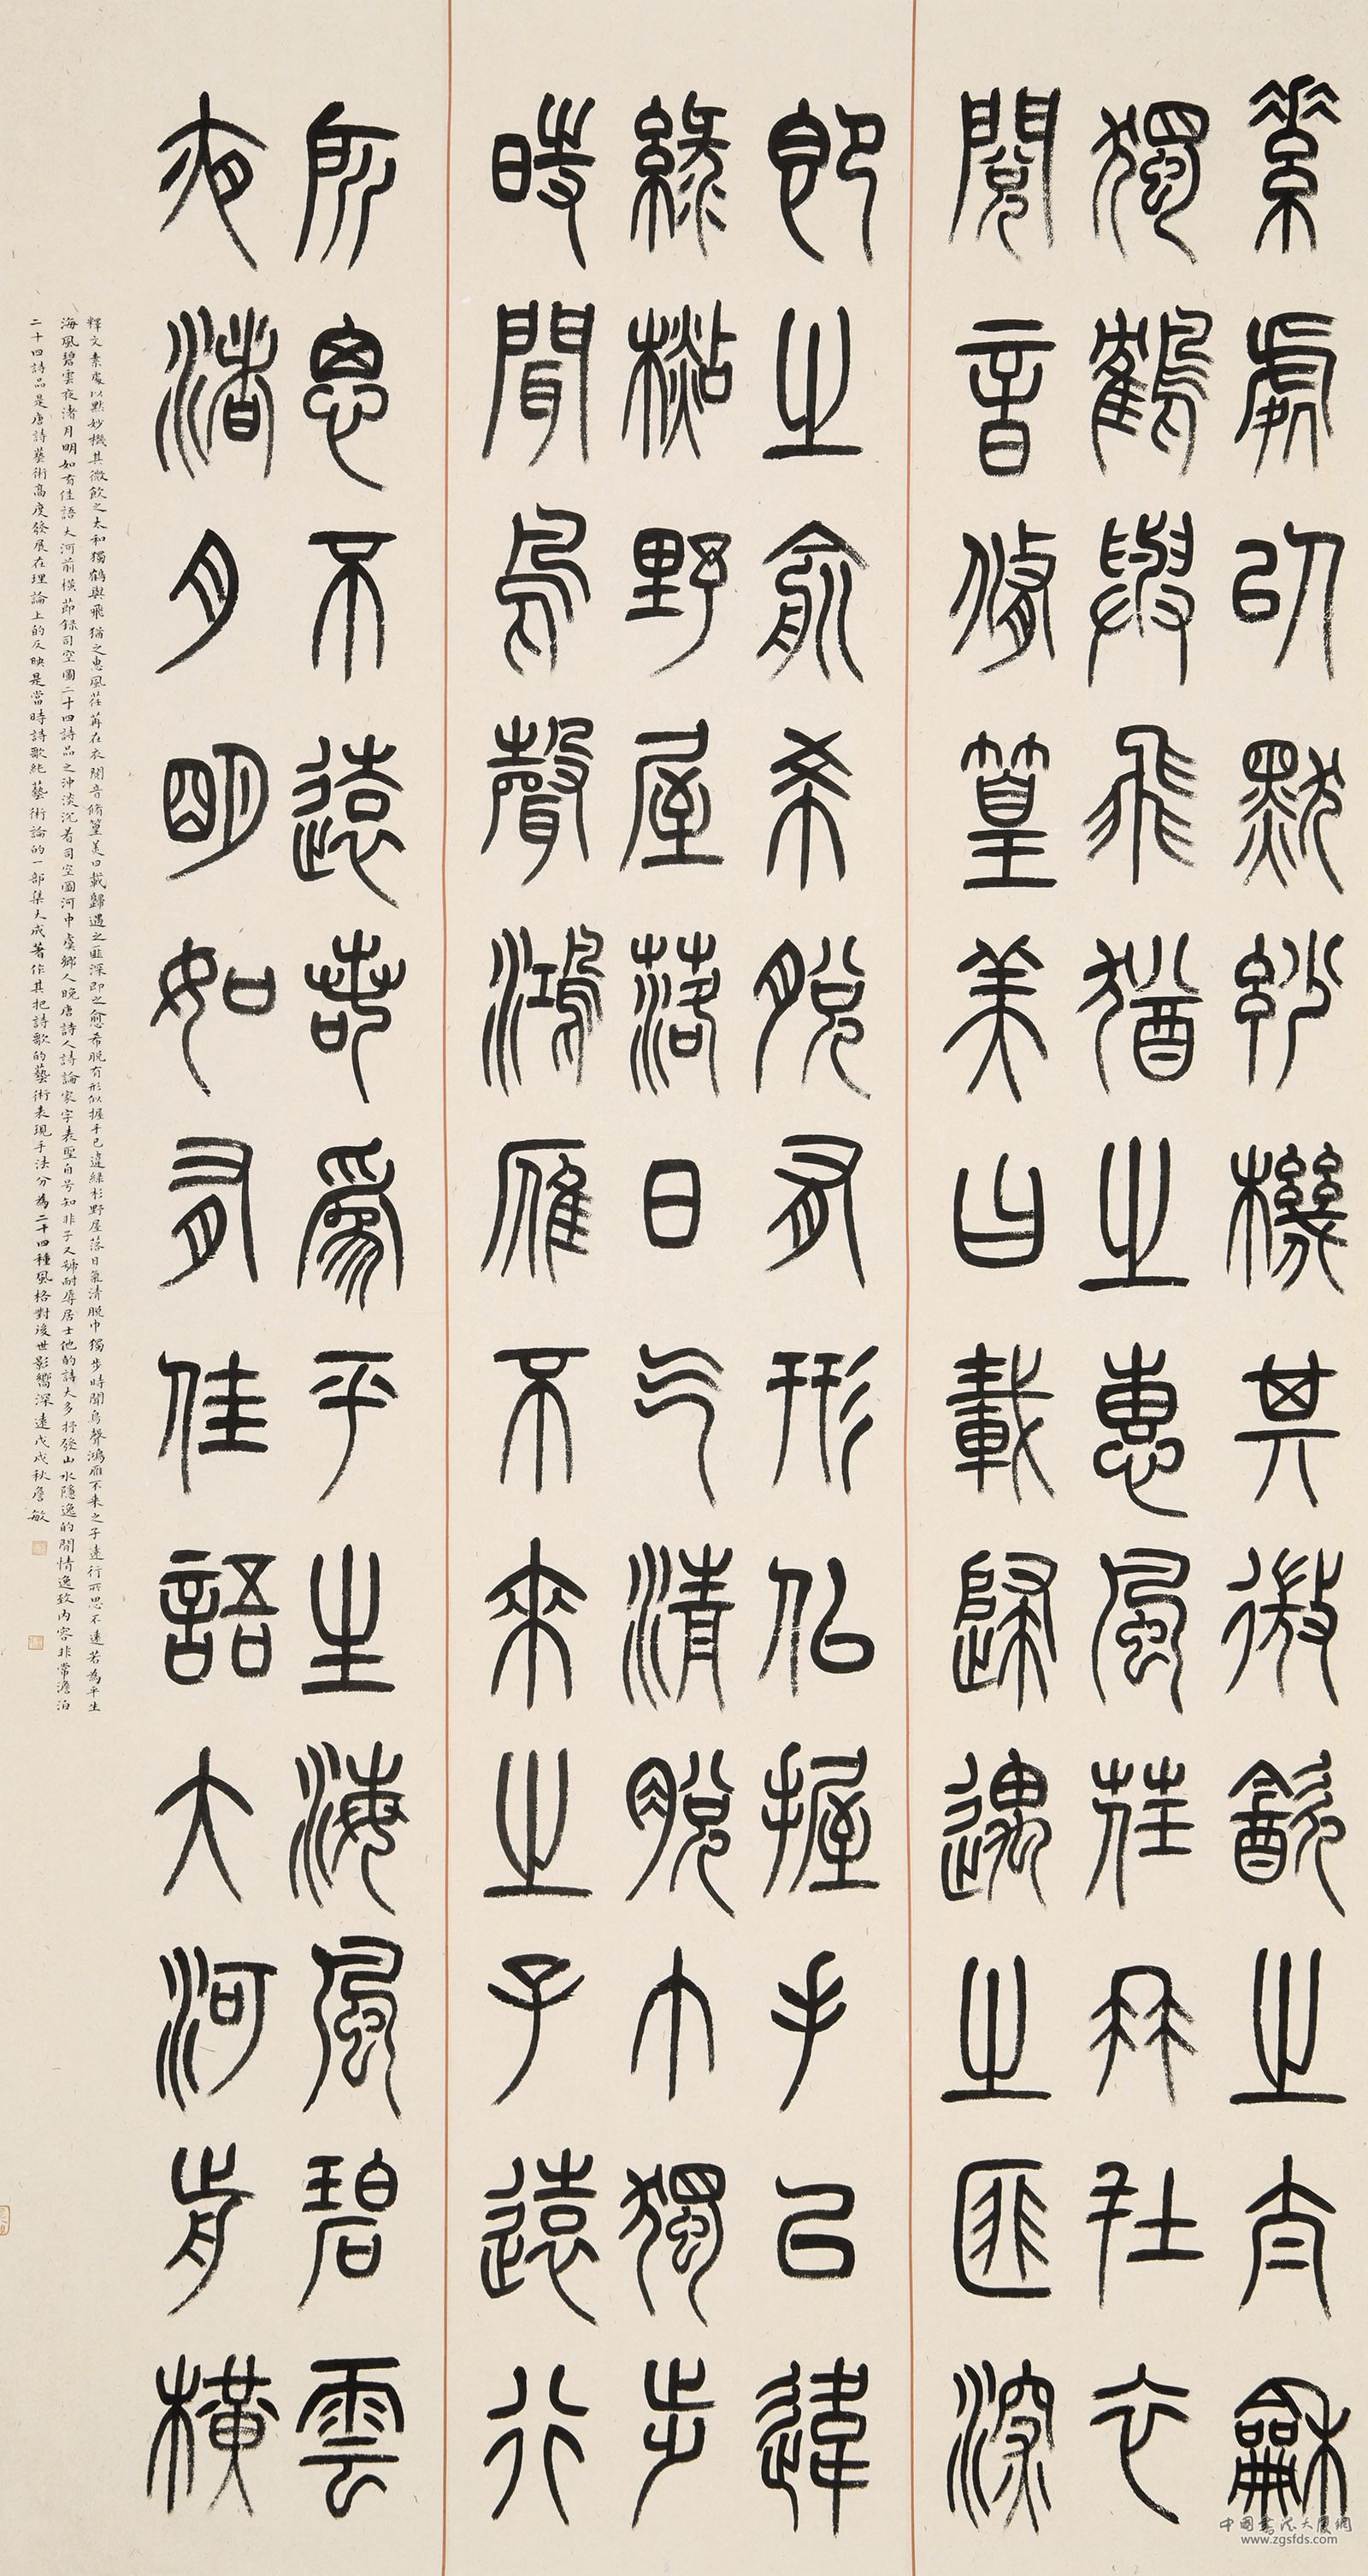 素處以默妙機其微飲之太和
獨鶴與飛猶之惠風荏苒在衣
閱音脩篁美曰載歸遇之匪深
即之愈希脫有形似握手已違
綠杉野屋落日氣清脫巾獨步
時聞鳥聲鴻雁不來之子遠行
所思不遠若為平生海風碧雲
夜渚月明如有佳語大河前橫
釋文素處以默妙機其微飲之太和獨鶴與飛猶之惠風荏苒在衣閱音脩篁美曰載歸遇之匪深即之愈希脫有形似握手已違綠杉野屋落日氣清脫巾獨步時聞鳥聲鴻雁不來之子遠行所思不遠若為平生
海風碧雲夜渚月明如有佳語大河前橫節錄司空圖二十四詩品之沖淡沉著司空圖河中虞鄉人晚唐詩人詩論家字表聖自号知非子又號耐辱居士他的詩大多抒發山水隱逸的閒情逸致內容非常澹泊
二十四詩品是唐詩藝術高度發展在理論上的反映是當時詩歌純藝術論的一部集大成著作其把詩歌的藝術表現手法分為二十四種風格對後世影響深遠戊戌秋詹敏
中國書法大廈網
www.zgsfds.com